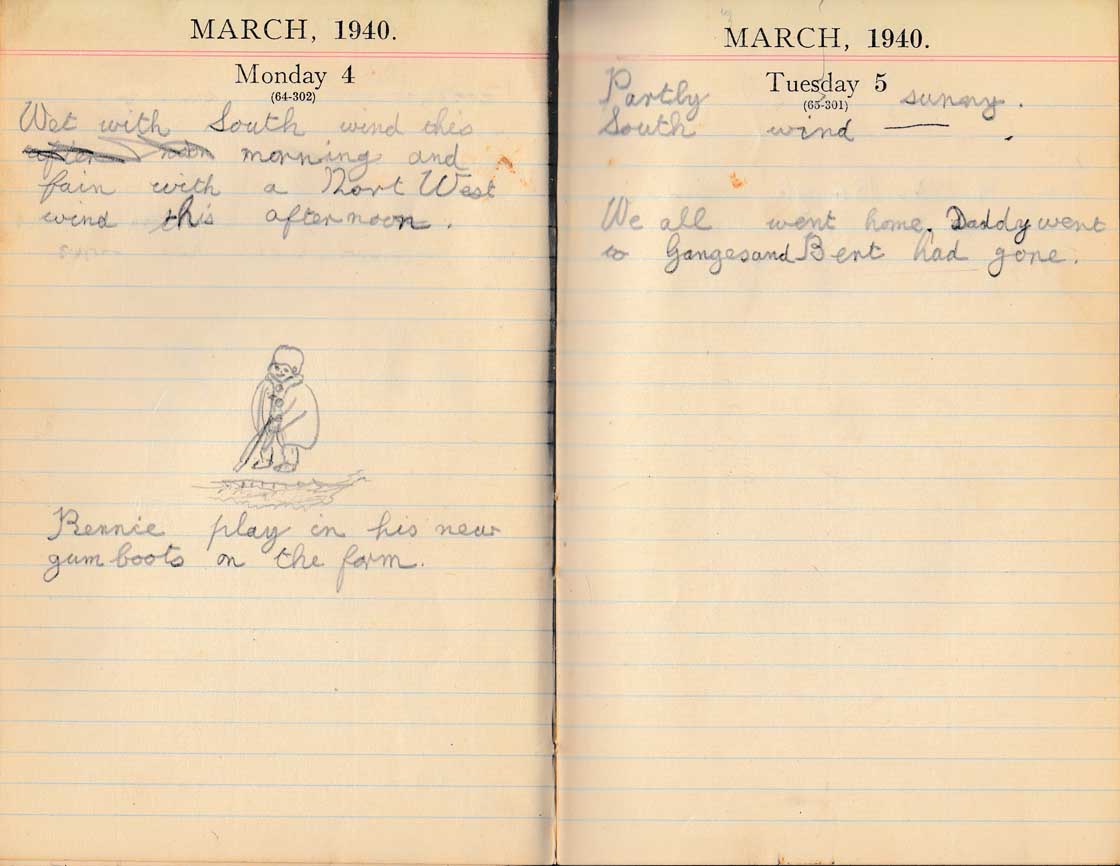 MARCH, 1940.
Monday 4
(64-302)
Wet with South wind this
after noon morning and
fain with a Nort West
wind this afternoon.
Rennie play in his new
gum boots on the farm.
MARCH, 1940.
Tuesday 5
(65-301)
Partly sunny.
South wind — .
We all went home. Daddy went
to Ganges and Bert had gone.